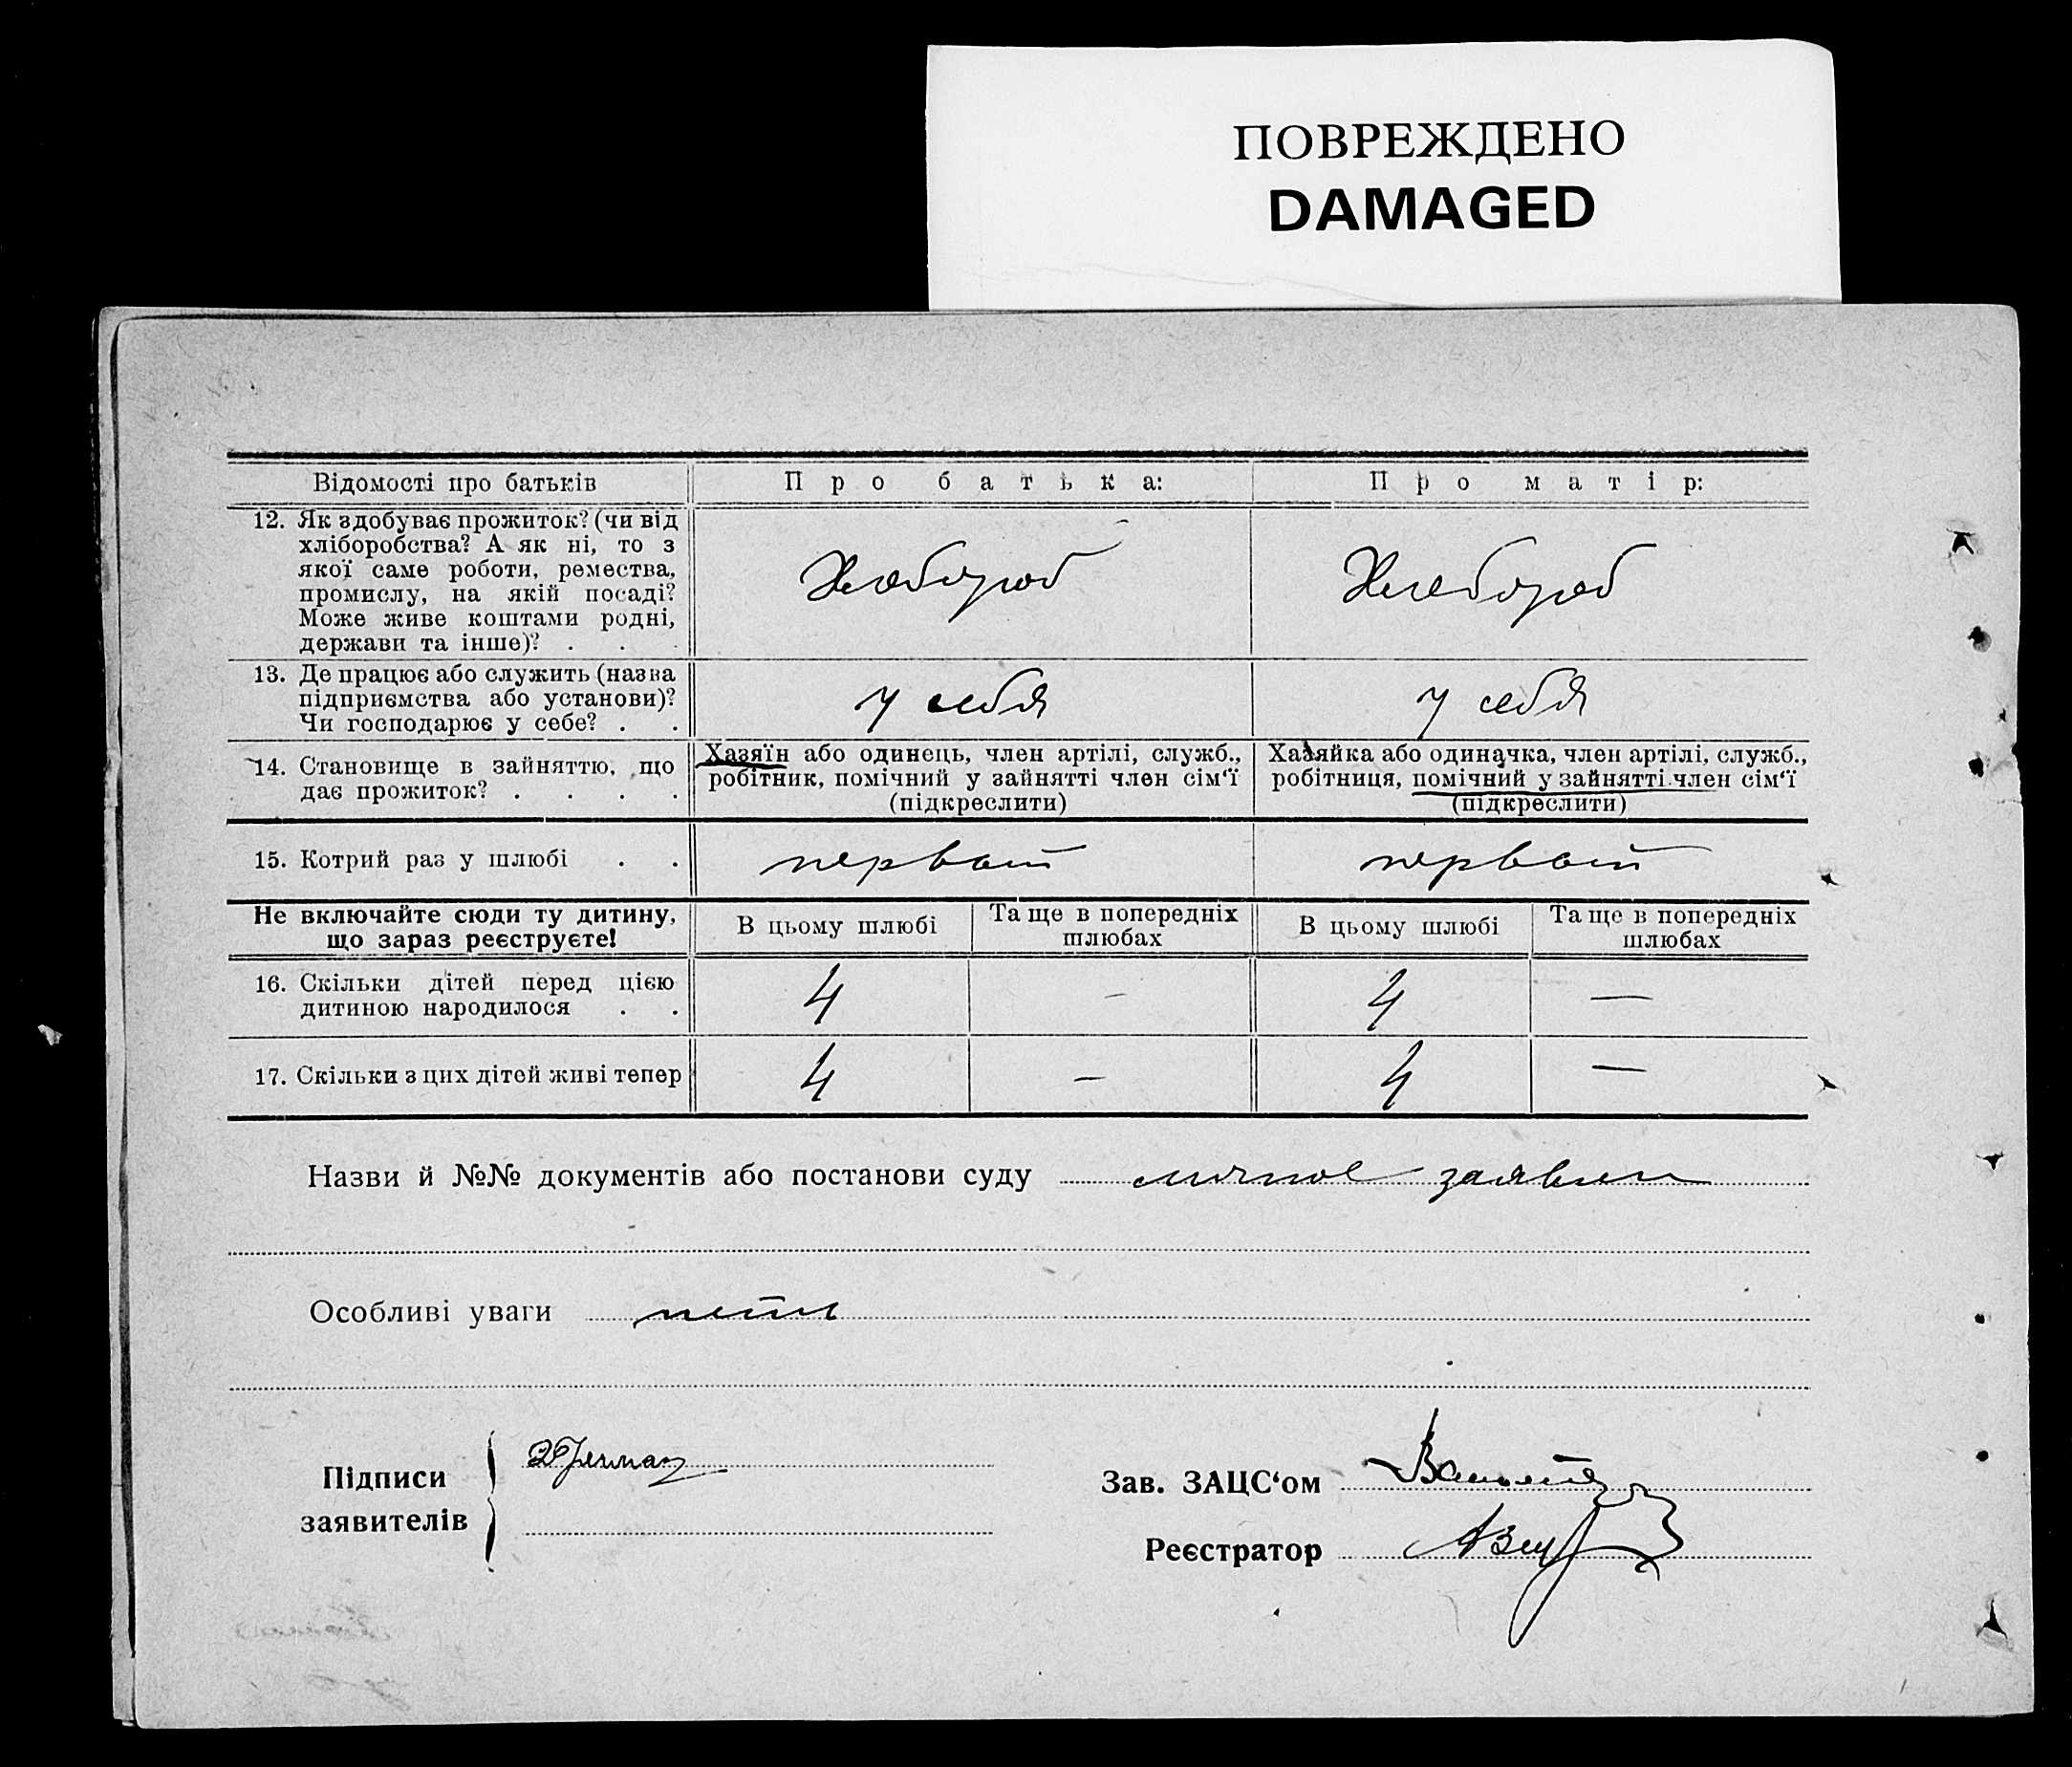 ПОВРЕЖДЕНО
DAMAGED
Відомості про батьків
Про батька:
Про матір:
12. Як здобуває прожиток? (чи від
хліборобства? А як ні, то з
якої саме роботи, ремества,
промислу, на якій посаді?
Може живе коштами родні,
держави та інше)? . . .
Хлебороб
Хлебороб
13. Де працює або служить (назва
підприємства або установи)?
Чи господарює у себе? . .
у себя
у себя
14. Становище в зайняттю, що
дає прожиток? . . . .
Хазяїн або одинець, член артілі, служб.,
робітник, помічний у зайнятті член сім‘ї
(підкреслити)
Хазяйка або одиначка, член артілі, служб.,
робітниця, помічний у зайнятті член сім‘ї
(підкреслити)
15. Котрий раз у шлюбі . .
первый
первый
Не включайте сюди ту дитину,
що зараз реєструєте!
В цьому шлюбі
Та ще в попередніх
шлюбах
В цьому шлюбі
Та ще в попередніх
шлюбах
16. Скільки дітей перед цією
дитиною народилося . .
4
–
4
—
17. Скільки з цих дітей живі тепер
4
–
4
—
Назви й №№ документів або постанови суду личное заявлен
Особливі уваги
Підписи
заявителів
Зав. ЗАЦС‘ом
Реєстратор